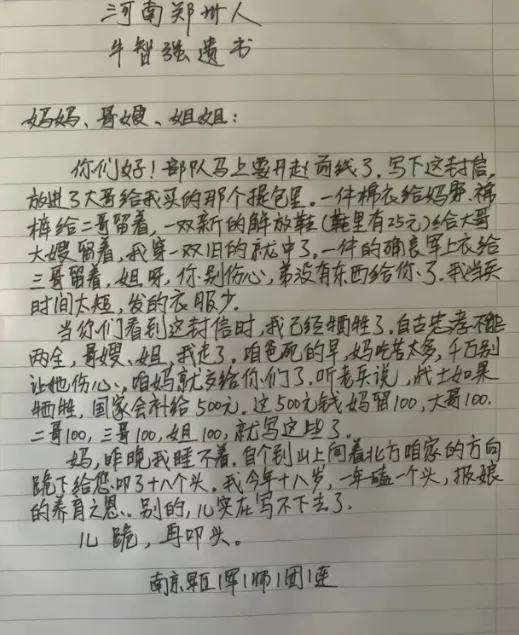 河南郑州人
牛智强遗书
妈妈、哥嫂、姐姐：
你们好！部队马上要开赴前线了。写下这封信，
放进了大哥给我买的那个提包里。一件棉衣给妈穿，棉
裤给二哥留着，一双新的解放鞋(鞋里有25元)给大哥
大嫂留着，我穿一双旧的就中了。一件的确良军上衣给
三哥留着，姐呀，你别伤心，弟没有东西给你了。我当兵
时间太短，发的衣服少。
当你们看到这封信时，我已经牺牲了。自古忠孝不能
两全，哥嫂、姐，我走了。咱爸死的早，妈吃苦太多，千万别
让她伤心，咱妈就交给你们了。听老兵说，战士如果
牺牲，国家会补给500元。这500元钱妈留100，大哥100，
二哥100，三哥100，姐100，就写这些了。
妈，昨晚我睡不着。自个到山上向着北方咱家的方向
跪下给您叩了十八个头。我今年十八岁，一年磕一个头，报娘
的养育之恩。别的，儿实在写不下去了。
儿跪，再叩头。
南京军区1军1师1团1连